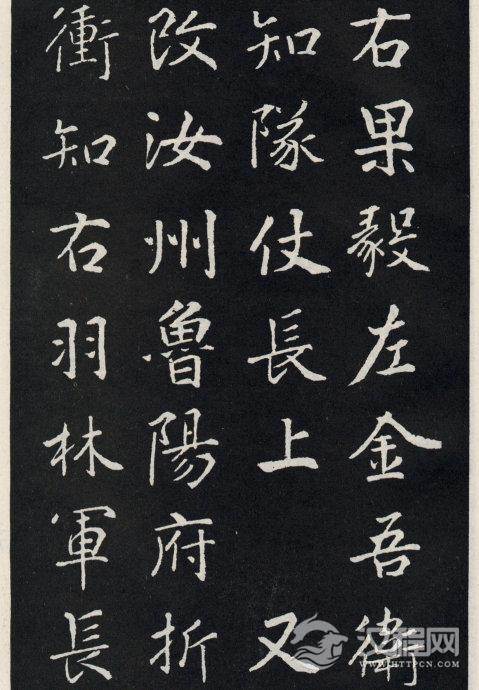 右果毅左金吾衛
知隊仗長上 又
改汝州魯陽府折
衝知右羽林軍長
汉程网
WWW.HTTPCN.COM